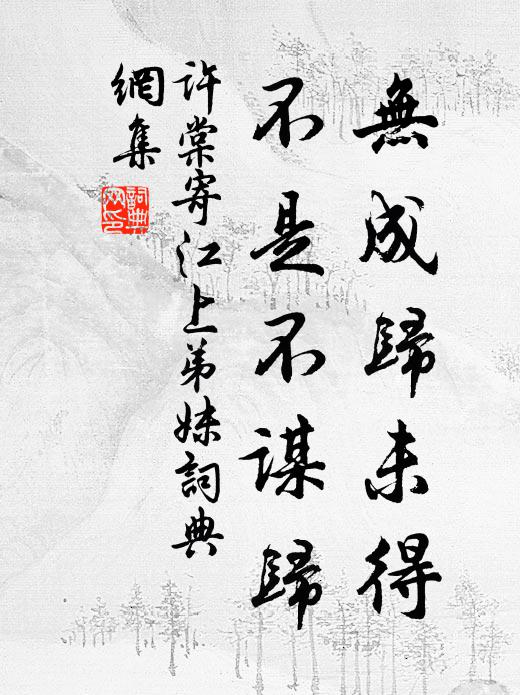 無成歸未得
不是不謀歸
許棠寄江上弟妹詞典
網集
詞典網印